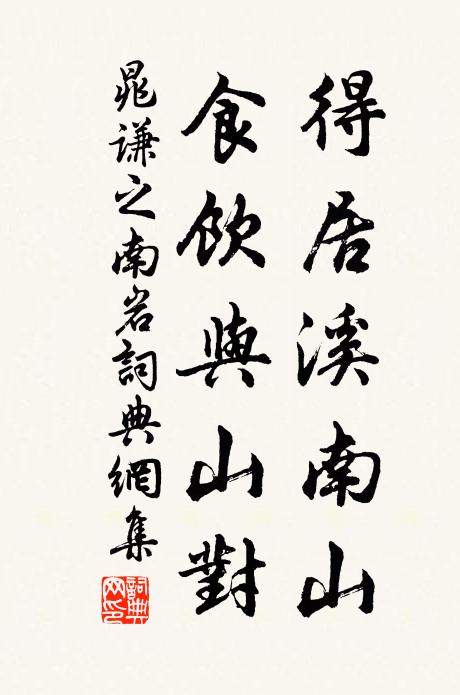 得居溪南山
食飲與山對
晁謙之南岩詞典網集
詞典網印